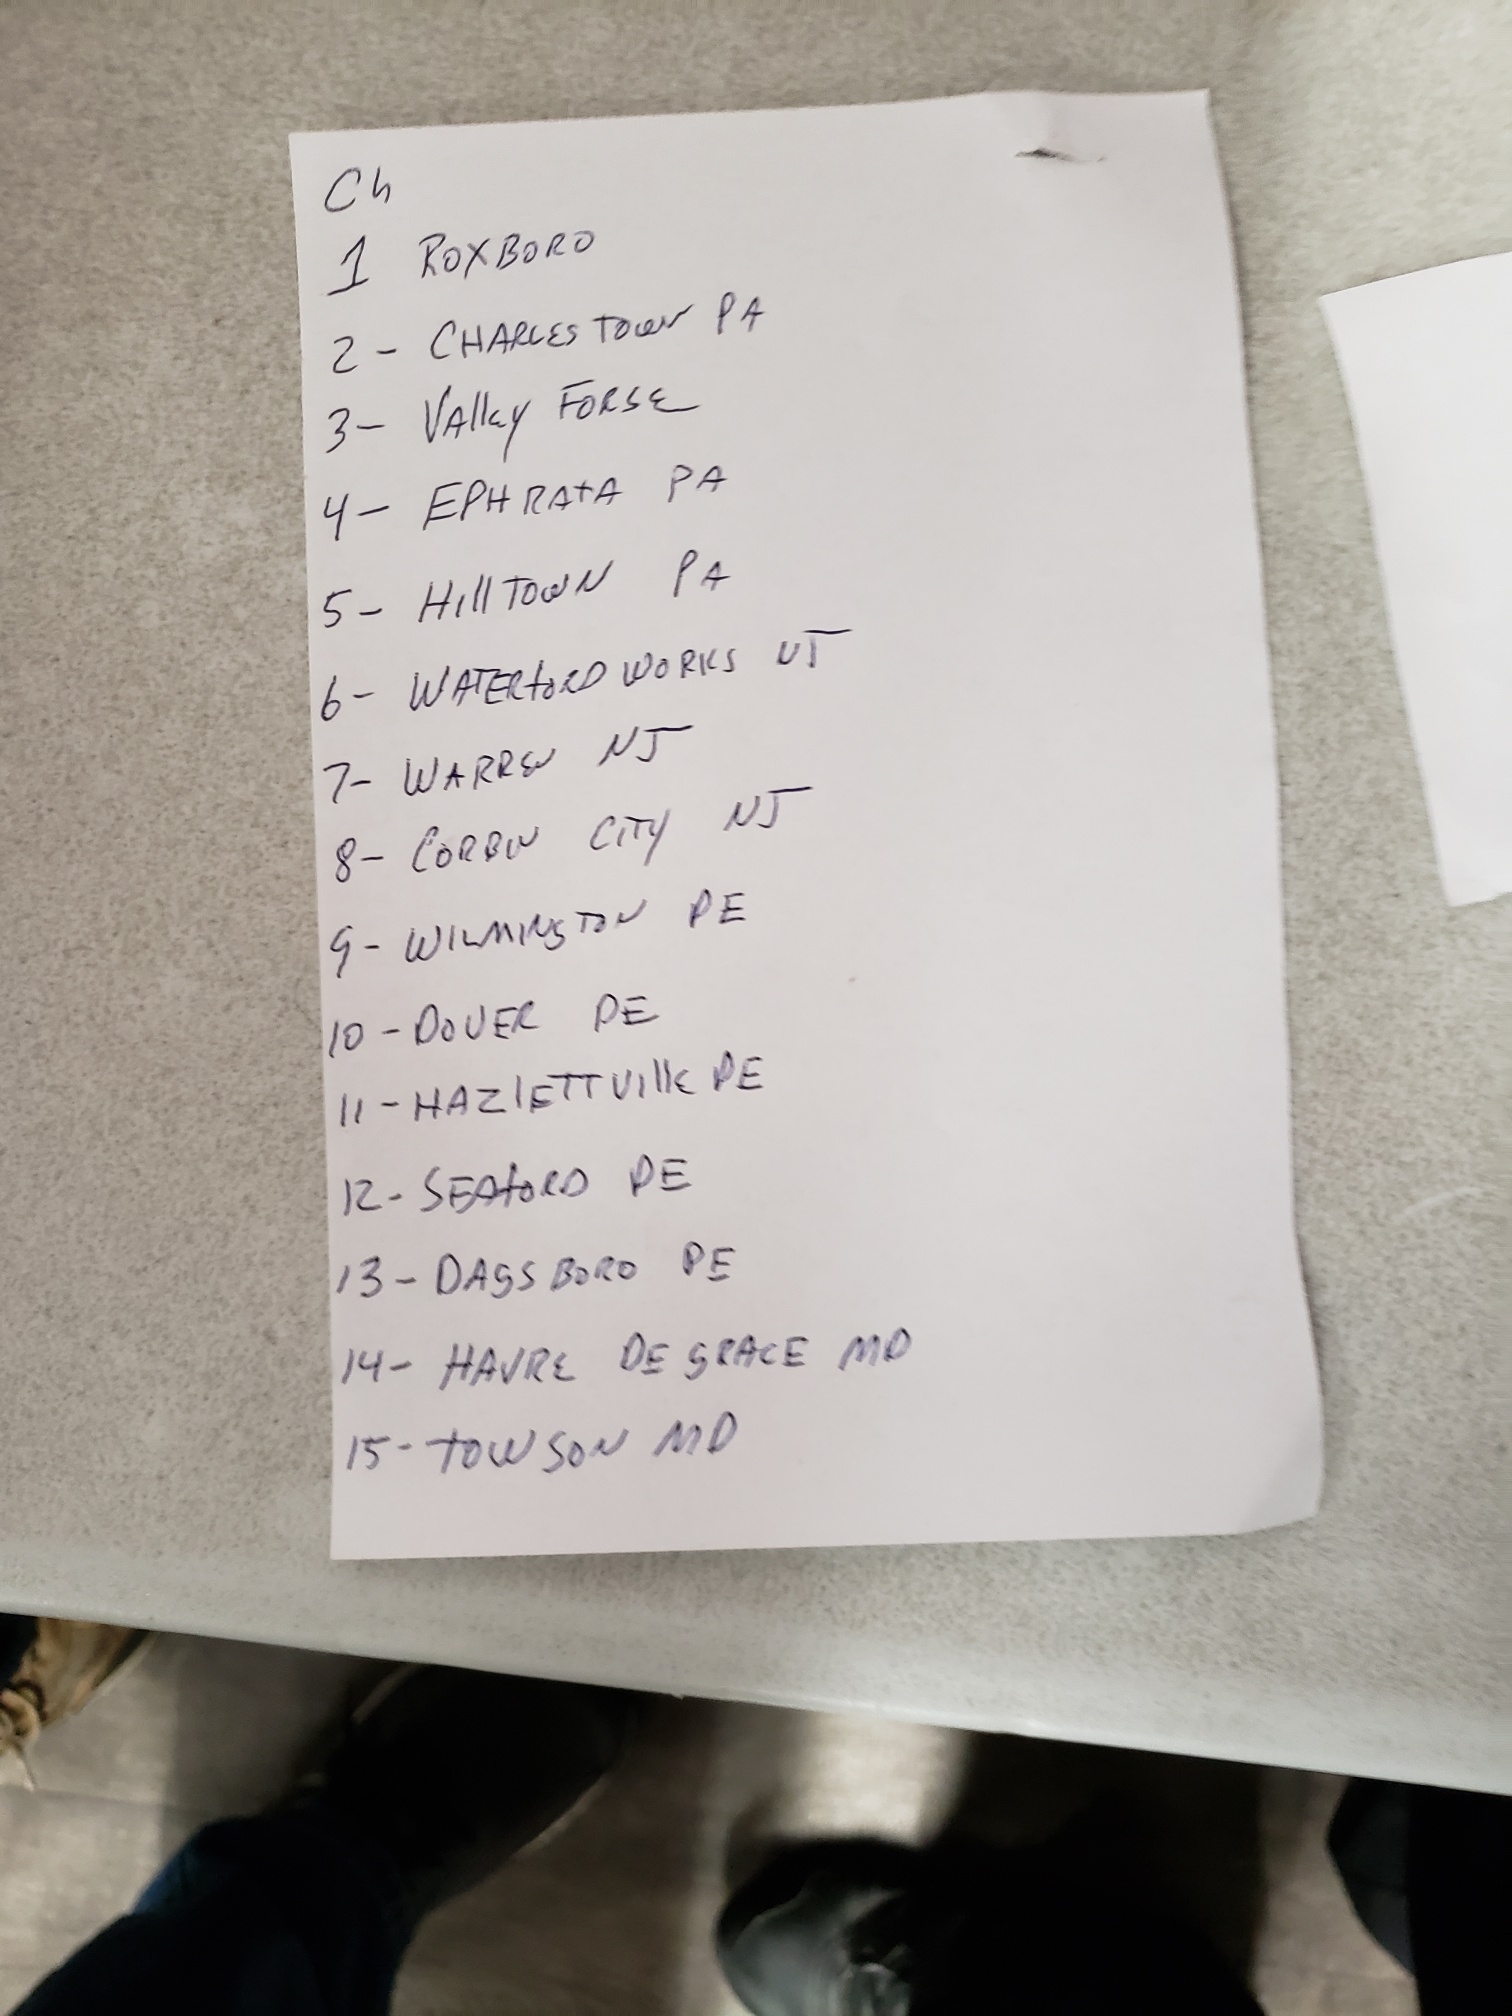 Ch
1 ROXBORO
2 - CHARLESTOWN PA
3 - VAllEy FORGE
4 - EPHRATA PA
5 - HillTOWN PA
6 - WATERFORD WORKS NJ
7 - WARREN NJ
8 - CORBIN CITY NJ
9 - WILMINGTON DE
10 - DOVER DE
11 - HAZlETTVillE DE
12 - SEAFORD DE
13 - DAGSBORO DE
14 - HAVRE DE GRACE MD
15 - TOWSON MD